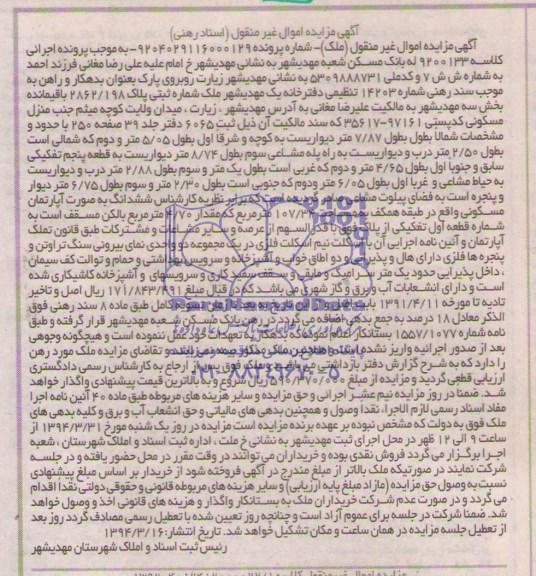 آگهی مزایده اموال غیر منقول (اسناد رهنی)
آگهی مزایده اموال غیر منقول (ملک)- شماره پرونده ۹۲۰۴۰۲۹۱۱۶۰۰۰۱۲۹- به موجب پرونده اجرائی
کلاسه ۹۲۰۰۱۳۳ له بانک مسکن شعبه مهدیشهر به نشانی مهدیشهر خ امام علیه علی رضا مغانی فرزند احمد
به شماره ش ش ۷ و کدملی ۵۳۰۹۸۸۸۷۳۱ به نشانی مهدیشهر زیارت روبروی پارک بعنوان بدهکار و راهن به
موجب سند رهنی شماره ۱۴۲۰۳ تنظیمی دفترخانه یک مهدیشهر ملک شماره ثبتی پلاک ۲۸۶۲/۱۹۸ باقیمانده
بخش سه مهدیشهر به مالکیت علیرضا مغانی به آدرس مهدیشهر ، زیارت ، میدان ولایت کوچه میثم جنب منزل
مسکونی کدپستی ۹۷۱۶۱-۳۵۶۱۷ که سند مالکیت آن ذیل ثبت ۶۰۶۵ دفتر جلد ۳۹ صفحه ۲۵۰ با حدود و
مشخصات شمالا بطول بطول ۷/۸۷ متر دیواریست به کوچه و شرقا اول بطول ۵/۰۵ متر و دوم که شمالی است
بطول ۲/۵۰ متر درب و دیواریست به راه پله مشاعی سوم بطول ۸/۷۴ متر دیواریست به قطعه پنجم تفکیکی
سابق و جنوبا اول بطول ۴/۶۵ متر و دوم که غربی است بطول یک متر و سوم بطول ۲/۸۸ متر درب و دیواریست
به حیاط مشاعی و غربا اول بطول ۶/۰۵ متر ودوم که جنوبی است بطول ۲/۳۰ متر و سوم بطول ۶/۷۵ متر دیوار
و پنجره است به فضای پیلوت مشاعی محدود شده است که برابر نظریه کارشناس ششدانگ به صورت آپارتمان
مسکونی واقع در طبقه همکف به مساحت ۱۰۷/۳ مترمربع که مقدار مترمربع بالکن مسقف است به
شماره قطعه اول تفکیکی از پلاک فوق با قدرالسهم از عرصه و سایر مشاعات و مشترکات طبق قانون تملک
آپارتمان و آئین نامه اجرایی آن با اسکلت نیم اسکلت فلزی در یک مجموعه دو واحدی نمای بیرونی سنگ تراوتن و
پنجره ها فلزی دارای هال و پذیرایی دو اطاق خواب و آشپزخانه و سرویس بهداشتی و حمام و توالت کف سیمان
، داخل پذیرایی حدود یک متر سرامیک و مابقی و سقف سفید کاری و سرویسهای و آشپزخانه کاشیکاری شده
است و دارای انشعابات آب و برق و گاز شهری می باشد که در قبال مبلغ ۱۷۱/۸۴۳/۶۹۱ ریال اصل و تاخیر
تادیه تا مورخه ۱۳۹۱/۴/۱۱ بابت از آن تاریخ به بعد تا زمان وصول کامل طبق ماده ۸ سند رهنی فوق
الذکر معادل ۱۸ درصد به جمع بدهی اضافه می گردد در رهن بانک مسکن شعبه مهدیشهر قرار گرفته و طبق
نامه شماره ۱۵۵۷/۱۰۷۷ بستانکار اعلام نموده که بدهکار به تعهدات خود عمل ننموده است و هیچگونه وجوهی
بعد از صدور اجرائیه واریز نشده است و همچنین ملک مذکور بیمه می باشد و تقاضای مزایده ملک مورد رهن
را دارد که به شرح گزارش دفتر بازداشتی می باشد و ملک فوق پس از ارجاع به کارشناس رسمی دادگستری
ارزیابی قطعی گردید و مزایده از مبلغ ریال شروع و به بالاترین قیمت پیشنهادی واگذار خواهد
شد. ضمنا در روز مزایده نیم عشر اجرائی و حق مزایده و سایر هزینه های مربوطه طبق ماده ۴۰ آئین نامه اجرا
مفاد اسناد رسمی لازم الاجرا، نقدا وصول و همچنین بدهی های مالیاتی و حق انشعاب آب و برق و کلیه بدهی های
ملک فوق به دولت که مشخص نبوده بر عهده برنده مزایده است مزایده در روز یک شنبه مورخ ۱۳۹۴/۳/۳۱ از
ساعت ۹ الی ۱۲ ظهر در محل اجرای ثبت مهدیشهر به نشانی خ ملت ، اداره ثبت اسناد و املاک شهرستان ، شعبه
اجرا برگزار می گردد فروش نقدی بوده و خریداران می توانند در وقت مقرر در محل حضور یافته و در جلسه
شرکت نمایند در صورتیکه ملک بالاتر از مبلغ مندرج در آگهی فروخته شود از خریدار بر اساس مبلغ پیشنهادی
نسبت به وصول حق مزایده (مازاد مبلغ پایه ارزیابی) و سایر هزینه های مربوطه قانونی و حقوقی دولتی نقدا اقدام
می گردد و در صورت عدم شرکت خریداران ملک به بستانکار واگذار و هزینه های قانونی اخذ و وصول خواهد
شد. ضمنا شرکت در جلسه برای عموم آزاد است و چنانچه روز تعیین شده با تعطیل رسمی مصادف گردد روز بعد
از تعطیل جلسه مزایده در همان ساعت و مکان تشکیل خواهد شد. تاریخ انتشار: ۱۳۹۴/۳/۱۶
رئیس ثبت اسناد و املاک شهرستان مهدیشهر